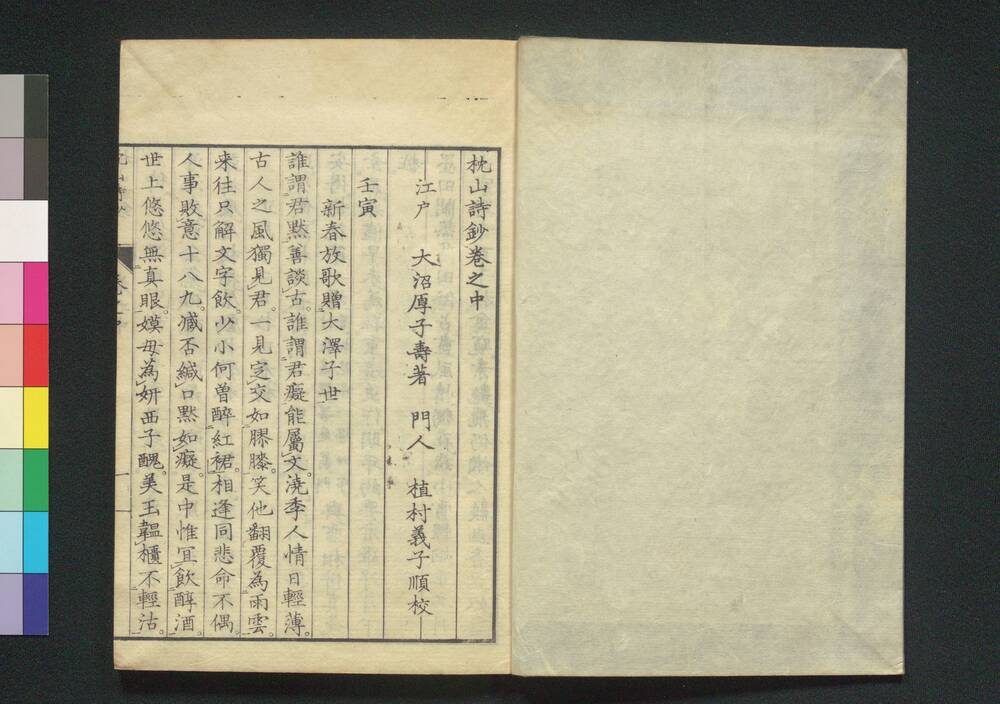 枕山詩鈔卷之中
江户 大沼厚子壽著 門人 植村義子順校
壬寅
新春放歌贈大澤子世
誰謂君黙善談古。誰謂君癡能屬文。澆季人情日輕薄。
古人之風獨見君。一見定交如膠膝。笑他翻覆為雨雲。
来往只解文字飲。少小何曽醉紅裙。相逢同悲命不偶。
人事敗意十八九。臧否緘口黙如癡。是中惟宜飲醇酒。
世上悠悠無真眼。嫫母為妍西子醜。美玉韞櫃不輕沽。